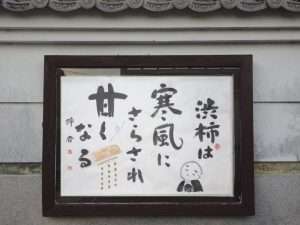 渋柿は
寒風に
さらされ
甘く
なる